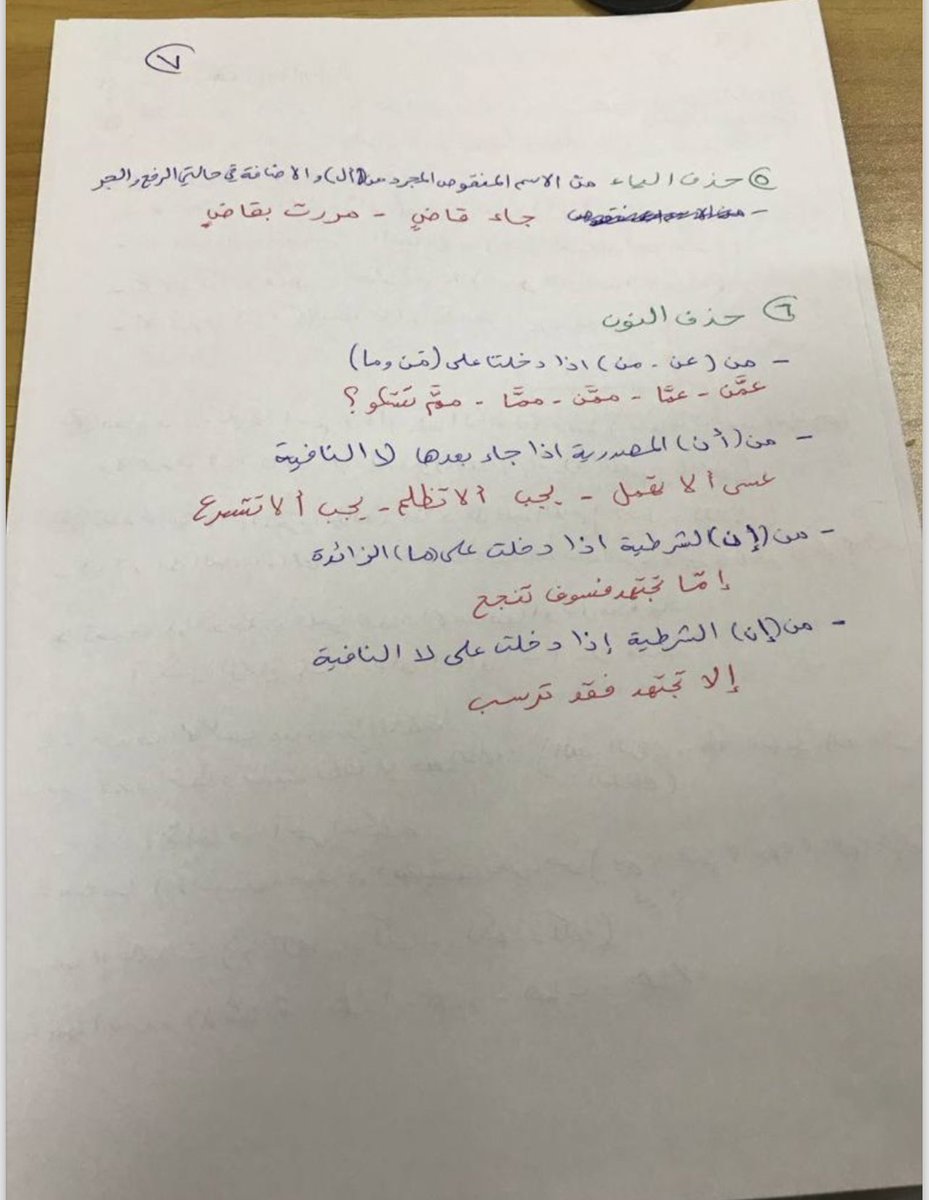 ٧
٥ حذف الياء من الاسم المنقوص المجرد من (أل) والاضافة في حالتي الرفع والجر
- جاء قاضٍ - مررت بقاضٍ
٦ حذف النون
- من (عن - من) اذا دخلتا على (مَن وما)
عمَّن - عمَّا - ممَّن - ممَّا - ممَّ تشكو؟
- من (أن) المصدرية اذا جاء بعدها لا النافية
عسى ألا يهمل - يجب ألا تظلم - يجب ألا تتسرع
- من (إن) الشرطية اذا دخلت على (ما) الزائدة
إمّا تجتهد فسوف تنجح
- من (إن) الشرطية إذا دخلت على لا النافية
إلا تجتهد فقد ترسب